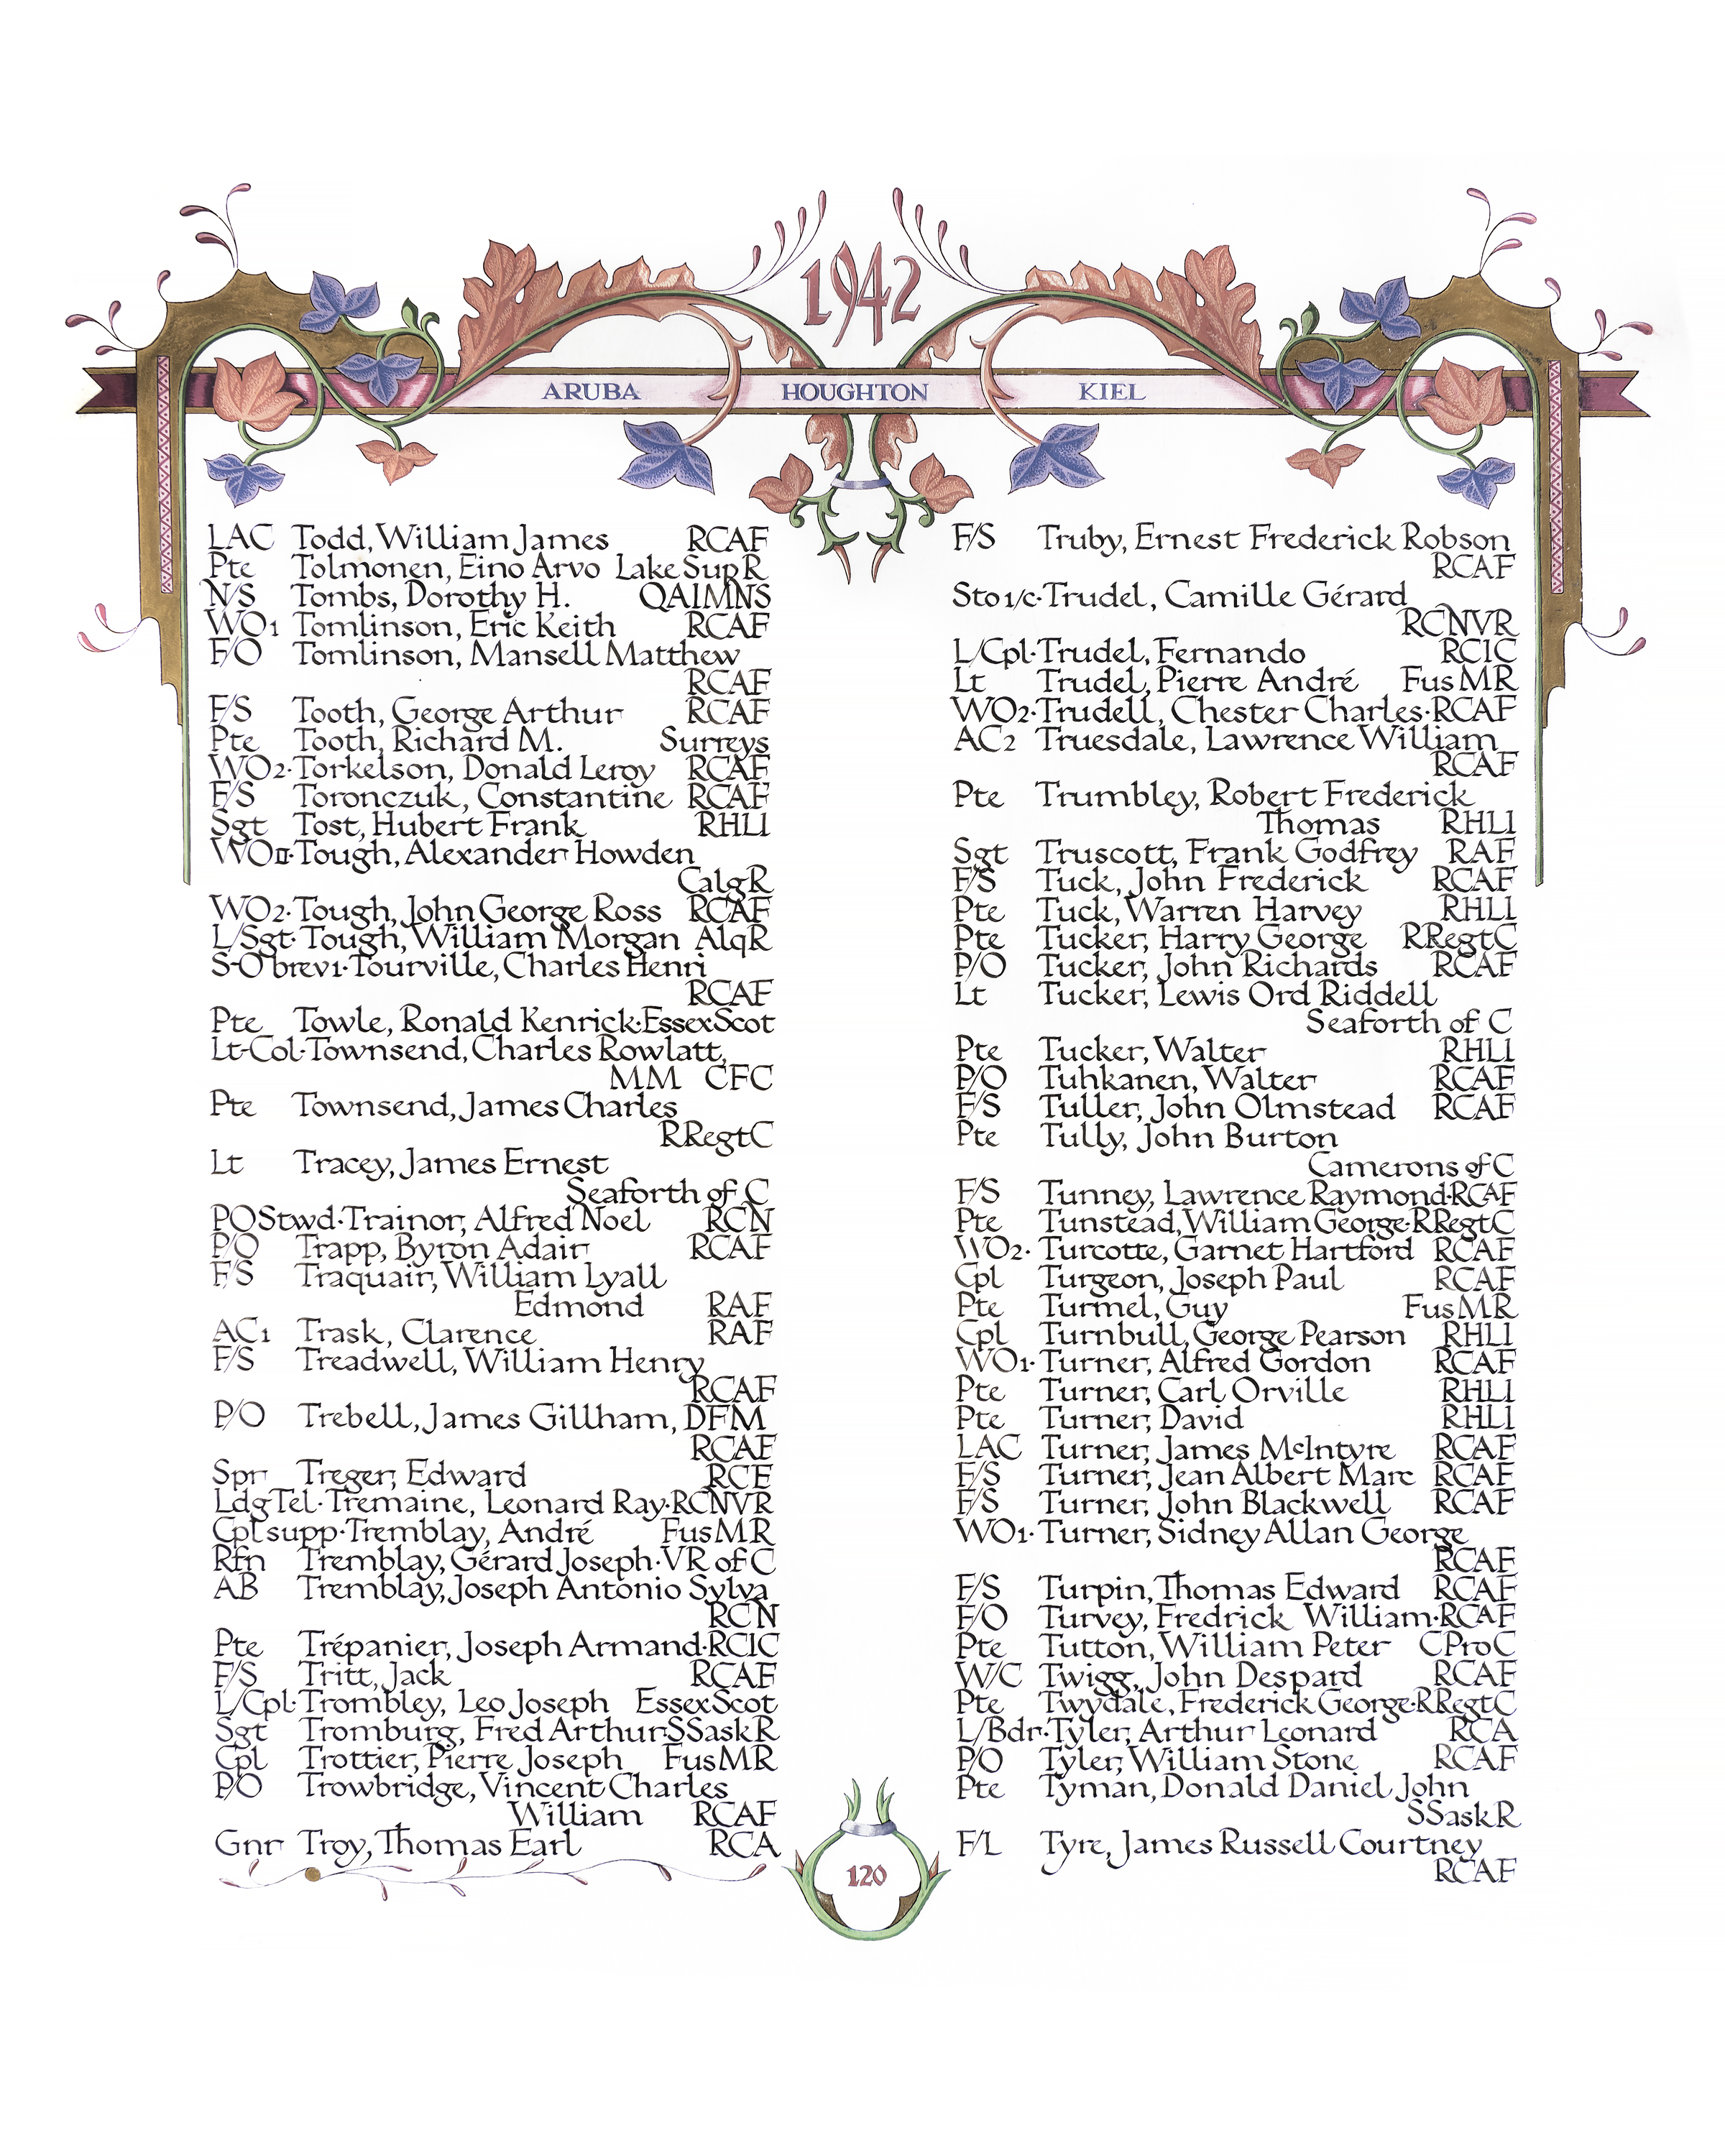 1942
ARUBA HOUGHTON KIEL
LAC Todd, William James RCAF
Pte Tolmonen, Eino Arvo Lake Sup R
N/S Tombs, Dorothy H. QAIMNS
WO1 Tomlinson, Eric Keith RCAF
F/O Tomlinson, Mansell Matthew
RCAF
F/S Tooth, George Arthur RCAF
Pte Tooth, Richard M. Surreys
WO2·Torkelson, Donald Leroy RCAF
F/S Toronczuk, Constantine RCAF
Sgt Tost, Hubert Frank RHLI
WOII·Tough, Alexander Howden
CalgR
WO2·Tough, John George Ross RCAF
L/Sgt·Tough, William Morgan AlqR
S-O brev1·Tourville, Charles Henri
RCAF
Pte Towle, Ronald Kenrick·EssexScot
Lt-Col·Townsend, Charles Rowlatt,
MM CFC
Pte Townsend, James Charles
RRegtC
Lt Tracey, James Ernest
Seaforth of C
POStwd·Trainor, Alfred Noel RCN
P/O Trapp, Byron Adair RCAF
F/S Traquair, William Lyall
Edmond RAF
AC1 Trask, Clarence RAF
F/S Treadwell, William Henry
RCAF
P/O Trebell, James Gillham, DFM
RCAF
Spr Treger, Edward RCE
LdgTel·Tremaine, Leonard Ray·RCNVR
Cpl supp·Tremblay, André FusMR
Rfn Tremblay, Gérard Joseph·VR of C
AB Tremblay, Joseph Antonio Sylva
RCN
Pte Trépanier, Joseph Armand·RCIC
F/S Tritt, Jack RCAF
L/Cpl·Trombley, Leo Joseph EssexScot
Sgt Tromburg, Fred Arthur·SSaskR
Cpl Trottier, Pierre Joseph FusMR
P/O Trowbridge, Vincent Charles
William RCAF
Gnr Troy, Thomas Earl RCA
F/S Truby, Ernest Frederick Robson
RCAF
Sto1/c·Trudel, Camille Gérard
RCNVR
L/Cpl·Trudel, Fernando RCIC
Lt Trudel, Pierre André FusMR
WO2·Trudell, Chester Charles·RCAF
AC2 Truesdale, Lawrence William
RCAF
Pte Trumbley, Robert Frederick
Thomas RHLI
Sgt Truscott, Frank Godfrey RAF
F/S Tuck, John Frederick RCAF
Pte Tuck, Warren Harvey RHLI
Pte Tucker, Harry George RRegtC
P/O Tucker, John Richards RCAF
Lt Tucker, Lewis Ord Riddell
Seaforth of C
Pte Tucker, Walter RHLI
P/O Tuhkanen, Walter RCAF
F/S Tuller, John Olmstead RCAF
Pte Tully, John Burton
Camerons of C
F/S Tunney, Lawrence Raymond·RCAF
Pte Tunstead, William George·RRegtC
WO2·Turcotte, Garnet Hartford RCAF
Cpl Turgeon, Joseph Paul RCAF
Pte Turmel, Guy FusMR
Cpl Turnbull, George Pearson RHLI
WO1·Turner, Alfred Gordon RCAF
Pte Turner, Carl Orville RHLI
Pte Turner, David RHLI
LAC Turner, James McIntyre RCAF
F/S Turner, Jean Albert Marc RCAF
F/S Turner, John Blackwell RCAF
WO1·Turner, Sidney Allan George
RCAF
F/S Turpin, Thomas Edward RCAF
F/O Turvey, Fredrick William·RCAF
Pte Tutton, William Peter CProC
W/C Twigg, John Despard RCAF
Pte Twydale, Frederick George·RRegtC
L/Bdr·Tyler, Arthur Leonard RCA
P/O Tyler, William Stone RCAF
Pte Tyman, Donald Daniel John
SSaskR
F/L Tyre, James Russell Courtney
RCAF
120